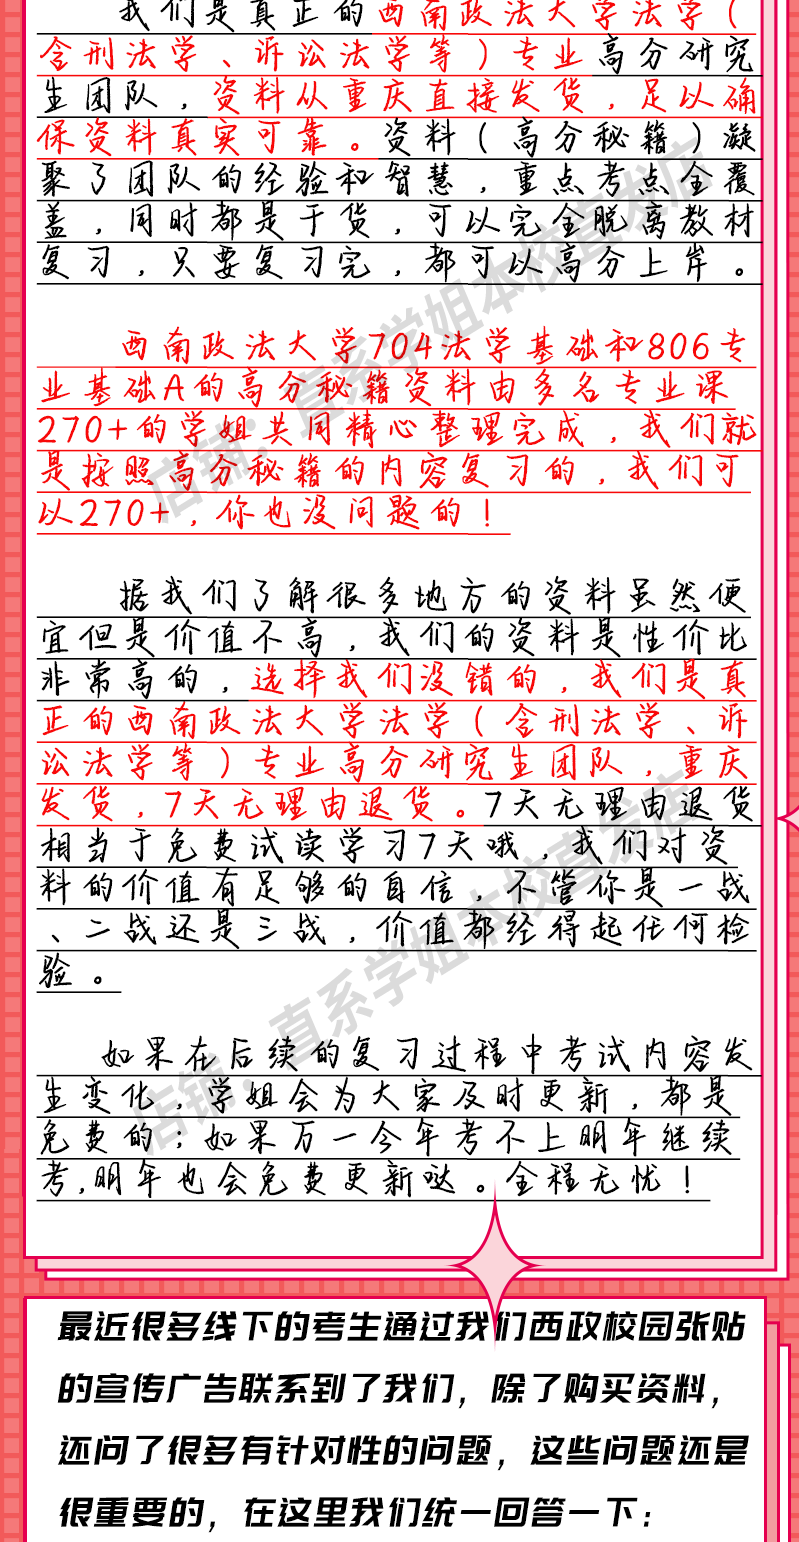 我们是真正的西南政法大学法学（
含刑法学、诉讼法学等）专业高分研究
生团队，资料从重庆直接发货，足以确
保资料真实可靠。资料（高分秘籍）凝
聚了团队的经验和智慧，重点考点全覆
盖，同时都是干货，可以完全脱离教材
复习，只要复习完，都可以高分上岸。
西南政法大学704法学基础和806专
业基础A的高分秘籍资料由多名专业课
270+的学姐共同精心整理完成，我们就
是按照高分秘籍的内容复习的，我们可
以270+，你也没问题的！
据我们了解很多地方的资料虽然便
宜但是价值不高，我们的资料是性价比
非常高的，选择我们没错的，我们是真
正的西南政法大学法学（含刑法学、诉
讼法学等）专业高分研究生团队，重庆
发货，7天无理由退货。7天无理由退货
相当于免费试读学习7天哦，我们对资
料的价值有足够的自信，不管你是一战
、二战还是三战，价值都经得起任何检
验。
如果在后续的复习过程中考试内容发
生变化，学姐会为大家及时更新，都是
免费的；如果万一今年考不上明年继续
考，明年也会免费更新哒。全程无忧！
店铺：直系学姐本校直发店
店铺：直系学姐本校直发店
最近很多线下的考生通过我们西政校园张贴
的宣传广告联系到了我们，除了购买资料，
还问了很多有针对性的问题，这些问题还是
很重要的，在这里我们统一回答一下：